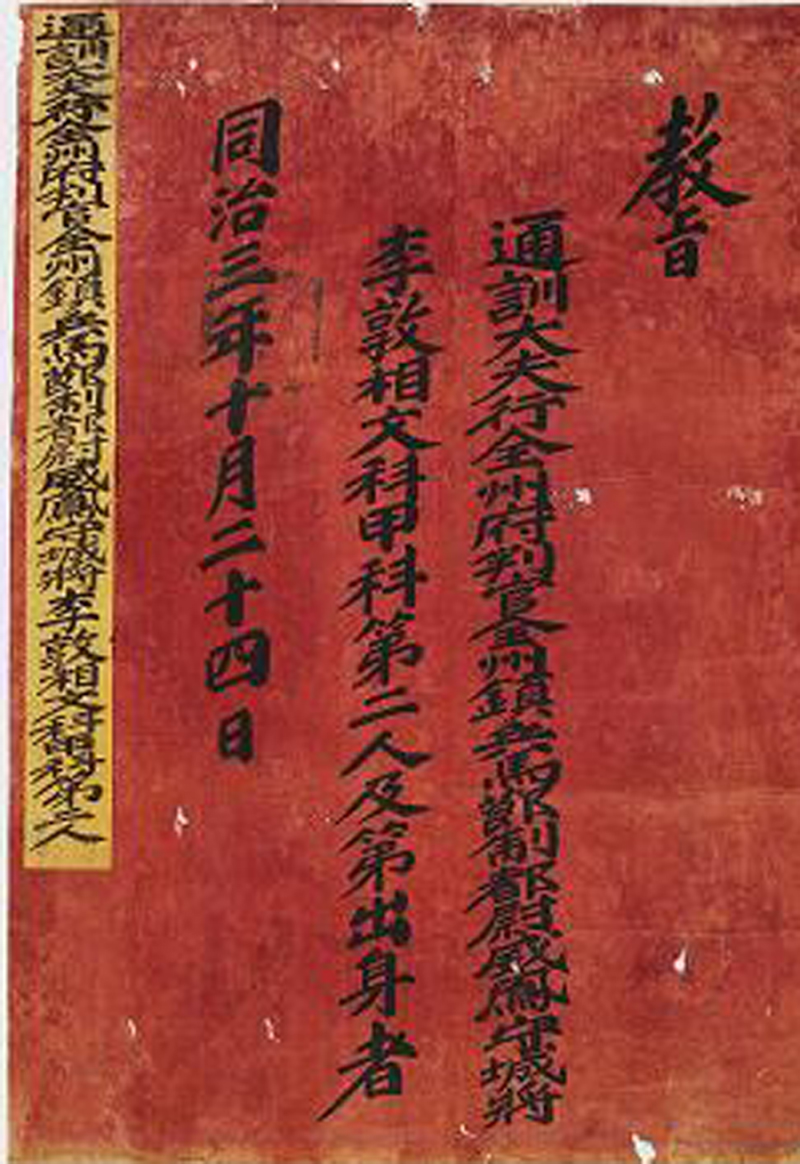 教旨
通訓大夫行全州府判官全州鎭兵馬節制都尉威鳳守城將
李敦相文科甲科第二人及第出身者
同治三年十月二十四日
通訓大夫行全州府判官全州鎭兵馬節制都尉威鳳守城將李敦相文科甲科第二人